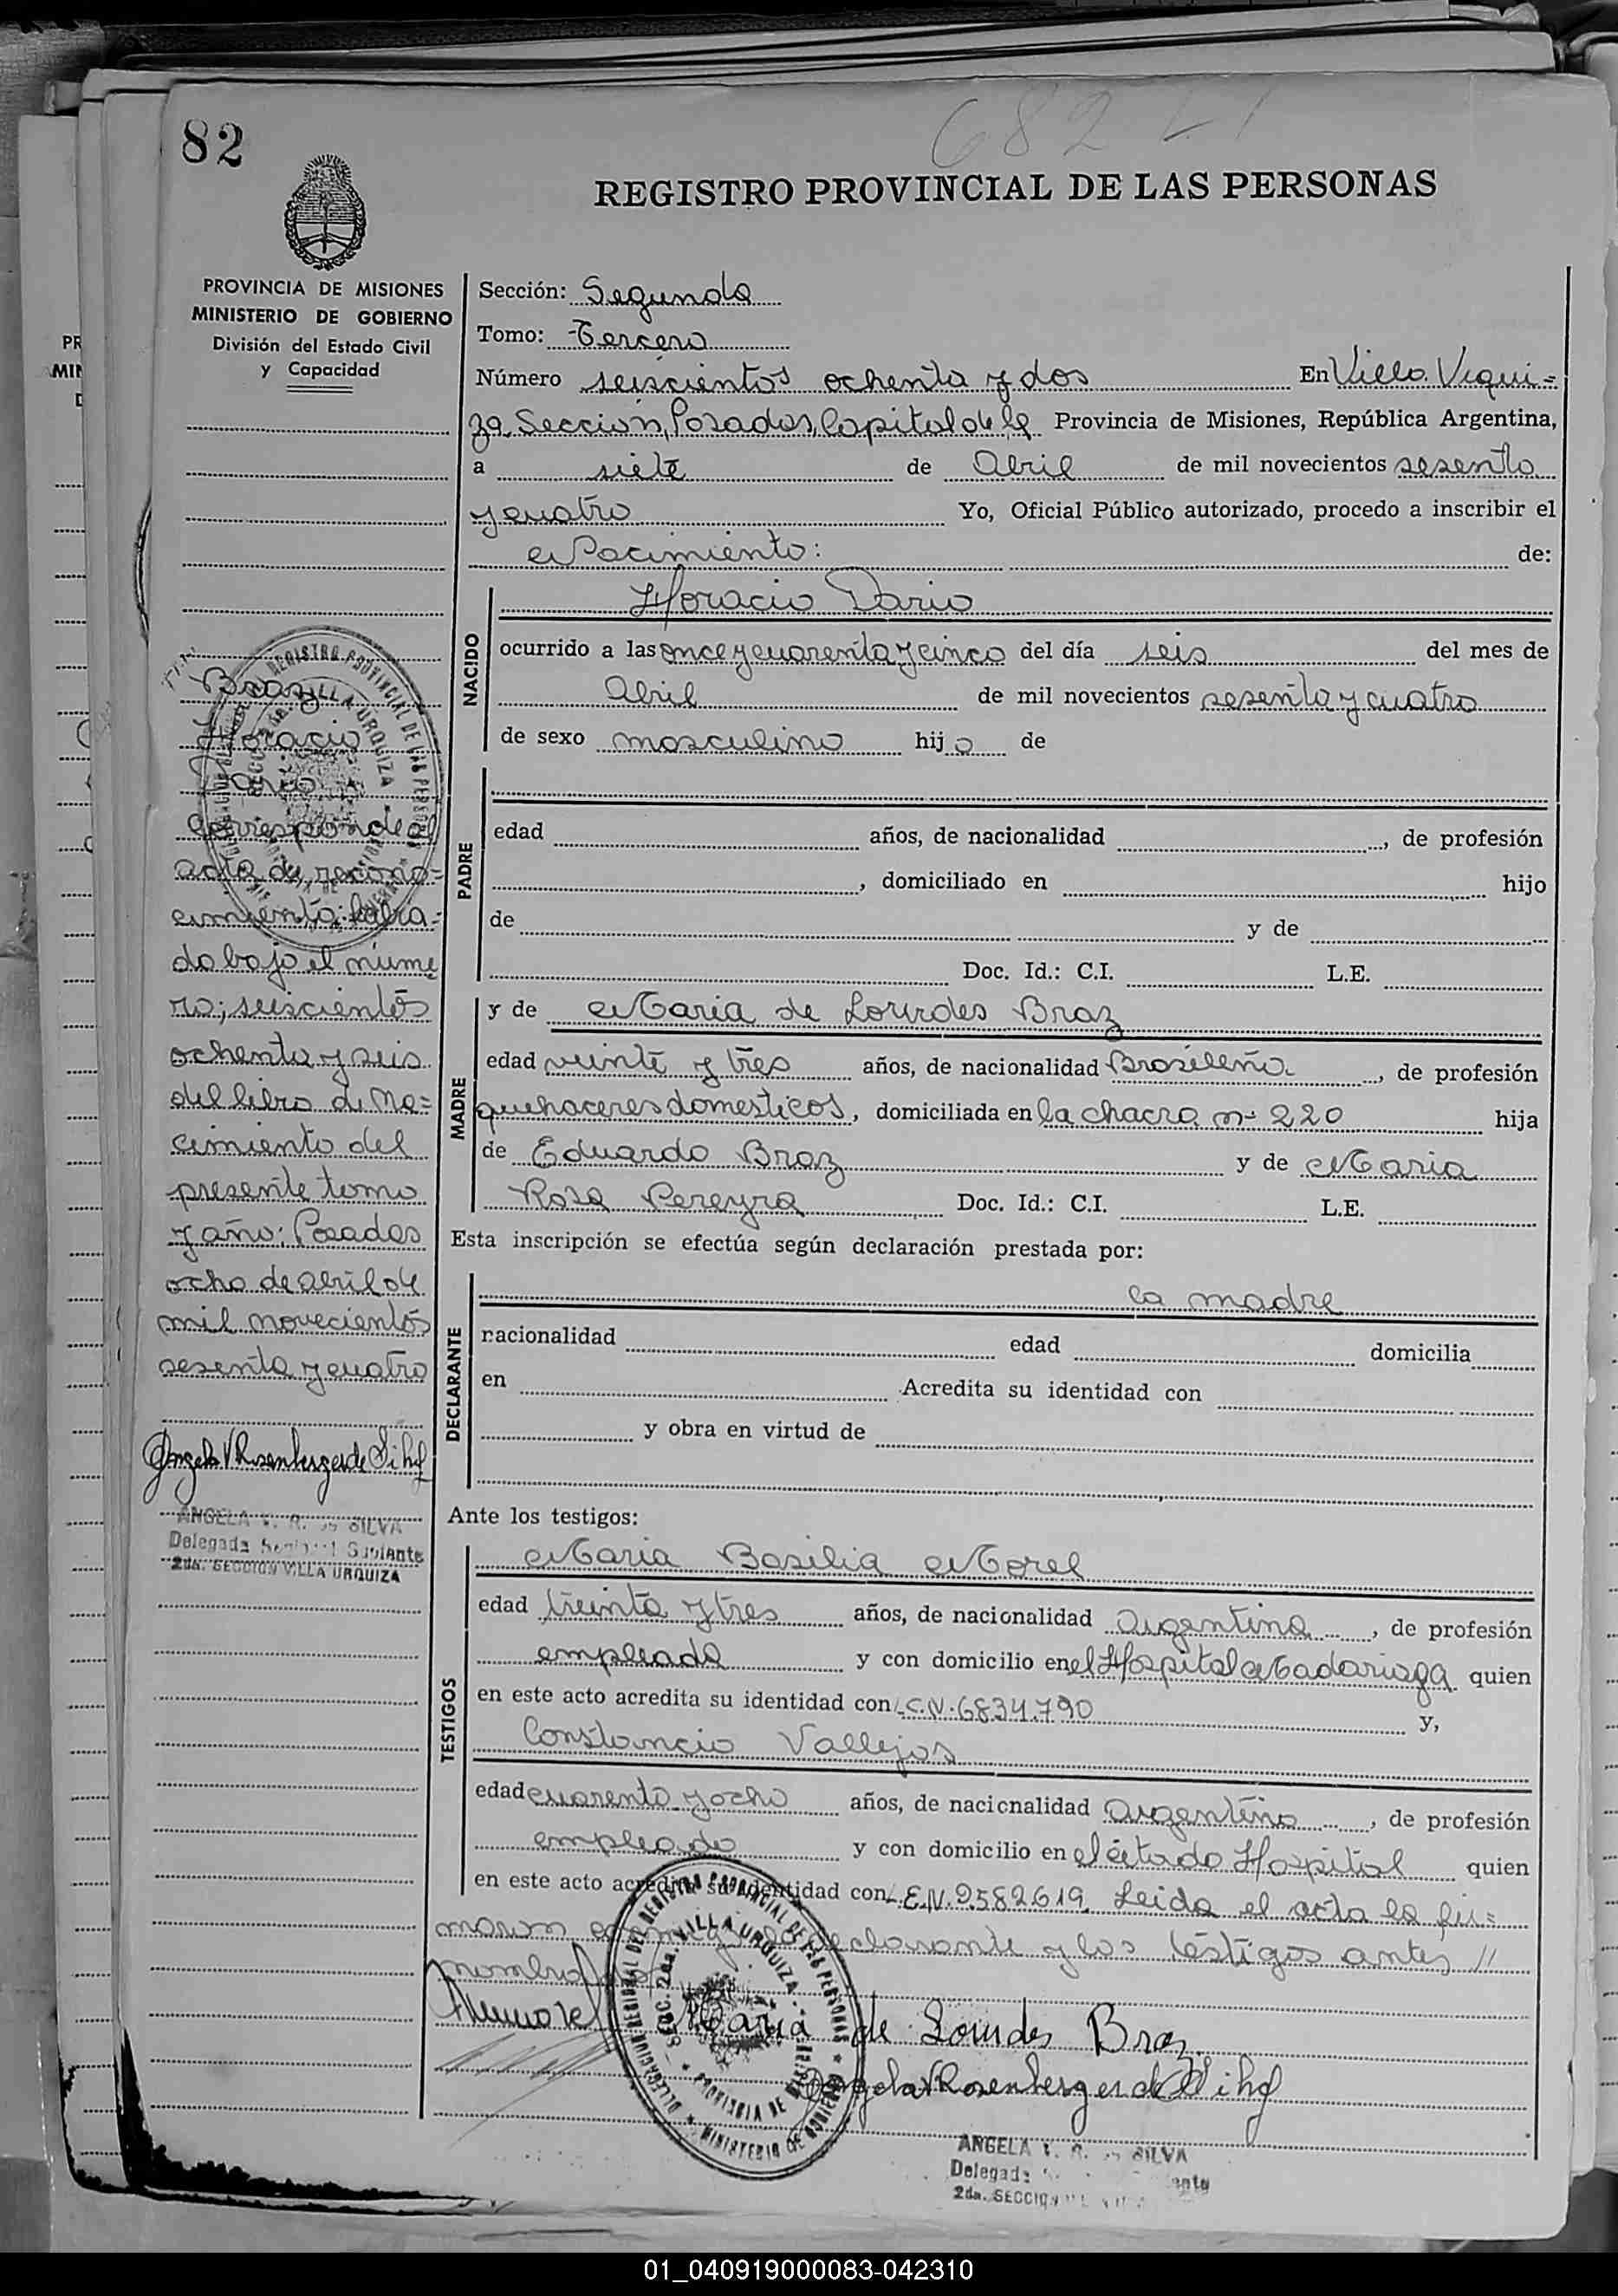 682
82
REGISTRO PROVINCIAL DE LAS PERSONAS
PROVINCIA DE MISIONES
MINISTERIO DE GOBIERNO
División del Estado Civil
y Capacidad
Sección: Segunda
Tomo: Tercero
Número seiscientos ochenta y dos En Villa
Sección, Posadas, Capital de la Provincia de Misiones, República Argentina,
a siete de Abril de mil novecientos sesenta
y cuatro Yo, Oficial Público autorizado, procedo a inscribir el
Nacimiento: de:
NACIDO
Horacio Dario
ocurrido a las once y cuarenta y cinco del día seis del mes de
Abril de mil novecientos sesenta y cuatro
de sexo masculino hijo de
PADRE
edad años, de nacionalidad , de profesión
, domiciliado en hijo
de y de
Doc. Id.: C.I. L.E.
MADRE
y de Maria de Lourdes Braz
edad veinte y tres años, de nacionalidad Brasileña , de profesión
quehaceres domesticos, domiciliada en la chacra nº 220 hija
de Eduardo Braz y de Maria
Rosa Pereyra Doc. Id.: C.I. L.E.
Esta inscripción se efectúa según declaración prestada por:
DECLARANTE
la madre
nacionalidad edad domicilia
en Acredita su identidad con
y obra en virtud de
Ante los testigos:
TESTIGOS
Maria Basilia Morel
edad treinta y tres años, de nacionalidad argentina , de profesión
empleada y con domicilio en el Hospital Madariaga quien
en este acto acredita su identidad con L.C.N. 6834.790 y,
Constancio Vallejos
edad cuarenta y ocho años, de nacionalidad argentino , de profesión
empleado y con domicilio en el citado Hospital quien
en este acto acredita su identidad con L.E.N. 9582619. Leida el acta la fir=
maron conmigo la declarante y los testigos antes //
nombrados
Maria de Lourdes Braz
Angela V Rosenberger de Silva
ANGELA V. R. de SILVA
Delegada
2da. SECCION
Braz
Horacio
Dario
Corresponde al
acta de recono=
cimiento labra=
do bajo el nume
ro; seiscientos
ochenta y seis
del libro de Na=
cimiento del
presente tomo
y año: Posadas
ocho de abril de
mil novecientos
sesenta y cuatro
Angela V Rosenberger de Silva
ANGELA V. R. de SILVA
Delegada Regional Suplente
2da. SECCION VILLA URQUIZA
DELEGACION REGIONAL DEL REGISTRO PROVINCIAL DE LAS PERSONAS
SECC. 2da. VILLA URQUIZA
PROVINCIA DE MISIONES
MINISTERIO DE GOBIERNO
01_040919000083-042310